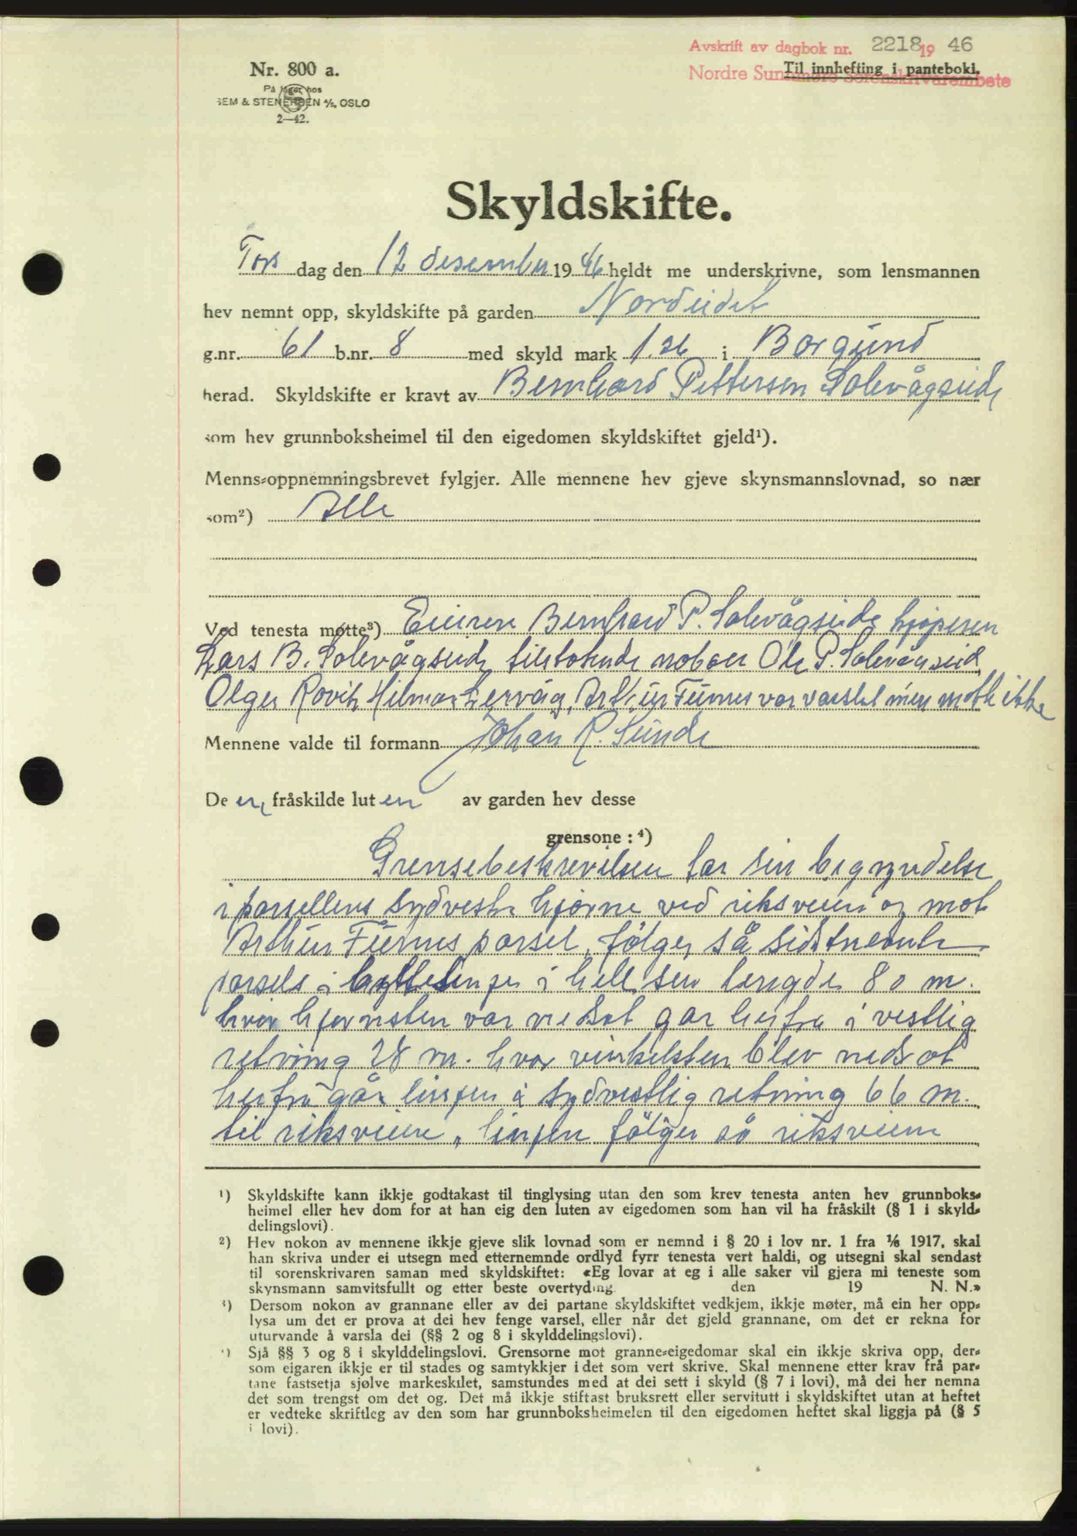 Avskrift av dagbok nr. 2218 19 46
Til innhefting i panteboki.
Nordre Sunnmøre Sorenskrivarembete
Nr. 800 a.
På lager hos
SEM & STENERSEN A/S, OSLO
2—42.
Skyldskifte.
Tors dag den 12 desember 1946 heldt me underskrivne, som lensmannen
hev nemnt opp, skyldskifte på garden Nordeidet
g.nr. 61 b.nr. 8 med skyld mark 1.26 i Borgund
herad. Skyldskifte er kravt av Bernhard Pettersen Solevågseide
som hev grunnboksheimel til den eigedomen skyldskiftet gjeld¹).
Menns-oppnemningsbrevet fylgjer. Alle mennene hev gjeve skynsmannslovnad, so nær
som²) Alle
Ved tenesta møtte³) Eieren Bernhard P. Solevågseide kjøperen
Lars B. Solevågseide tilstøtende naboer Ole P. Solevågseid
Olger Rovik Hilmar Lervåg, Arthur Furnes var varslet men møtte ikke
Mennene valde til formann Johan R. Sunde
De en fråskilde luten av garden hev desse
grensone: ⁴)
Grensebeskrivelsen tar sin begynndelse
i parsellens sydvestre hjørne ved riksveien og mot
Arthur Furnes parsel, følger så sidstnevnte
parsels i byttelinjen i hell sin lengde 80 m.
hvor hjørnsten var nedsat går herfra i vestlig
retning 28 m. hvor vinkelsten blev nedsat
herfra går linjen i sydvestlig retning 66 m.
til riksveien, linjen følger så riksveien
¹) Skyldskifte kann ikkje godtakast til tinglysing utan den som krev tenesta anten hev grunnboks-
heimel eller hev dom for at han eig den luten av eigedomen som han vil ha fråskilt (§ 1 i skyld-
delingslovi).
²) Hev nokon av mennene ikkje gjeve slik lovnad som er nemnd i § 20 i lov nr. 1 fra 1/6 1917, skal
han skriva under ei utsegn med etternemnde ordlyd fyrr tenesta vert haldi, og utsegni skal sendast
til sorenskrivaren saman med skyldskiftet: «Eg lovar at eg i alle saker vil gjera mi teneste som
skynsmann samvitsfullt og etter beste overtyding. den 19 N. N.»
³) Dersom nokon av grannane eller av dei partane skyldskiftet vedkjem, ikkje møter, må ein her opp-
lysa um det er prova at dei hev fenge varsel, eller når det gjeld grannane, om det er rekna for
uturvande å varsla dei (§§ 2 og 8 i skylddelingslovi).
⁴) Sjå §§ 3 og 8 i skylddelingslovi. Grensorne mot granne-eigedomar skal ein ikkje skriva opp, der-
som eigaren ikkje er til stades og samtykkjer i det som vert skrive. Skal mennene etter krav frå par-
tane fastsetja sjølve markeskilet, samstundes med at dei sett i skyld (§ 7 i lovi), må dei her nemna
det som trengst om det og. Det må ikkje stiftast bruksrett eller servitutt i skyldskiftet utan at heftet
er vedteke skriftleg av den som har grunnboksheimelen til den eigedomen heftet skal liggja på (§ 5
i lovi).